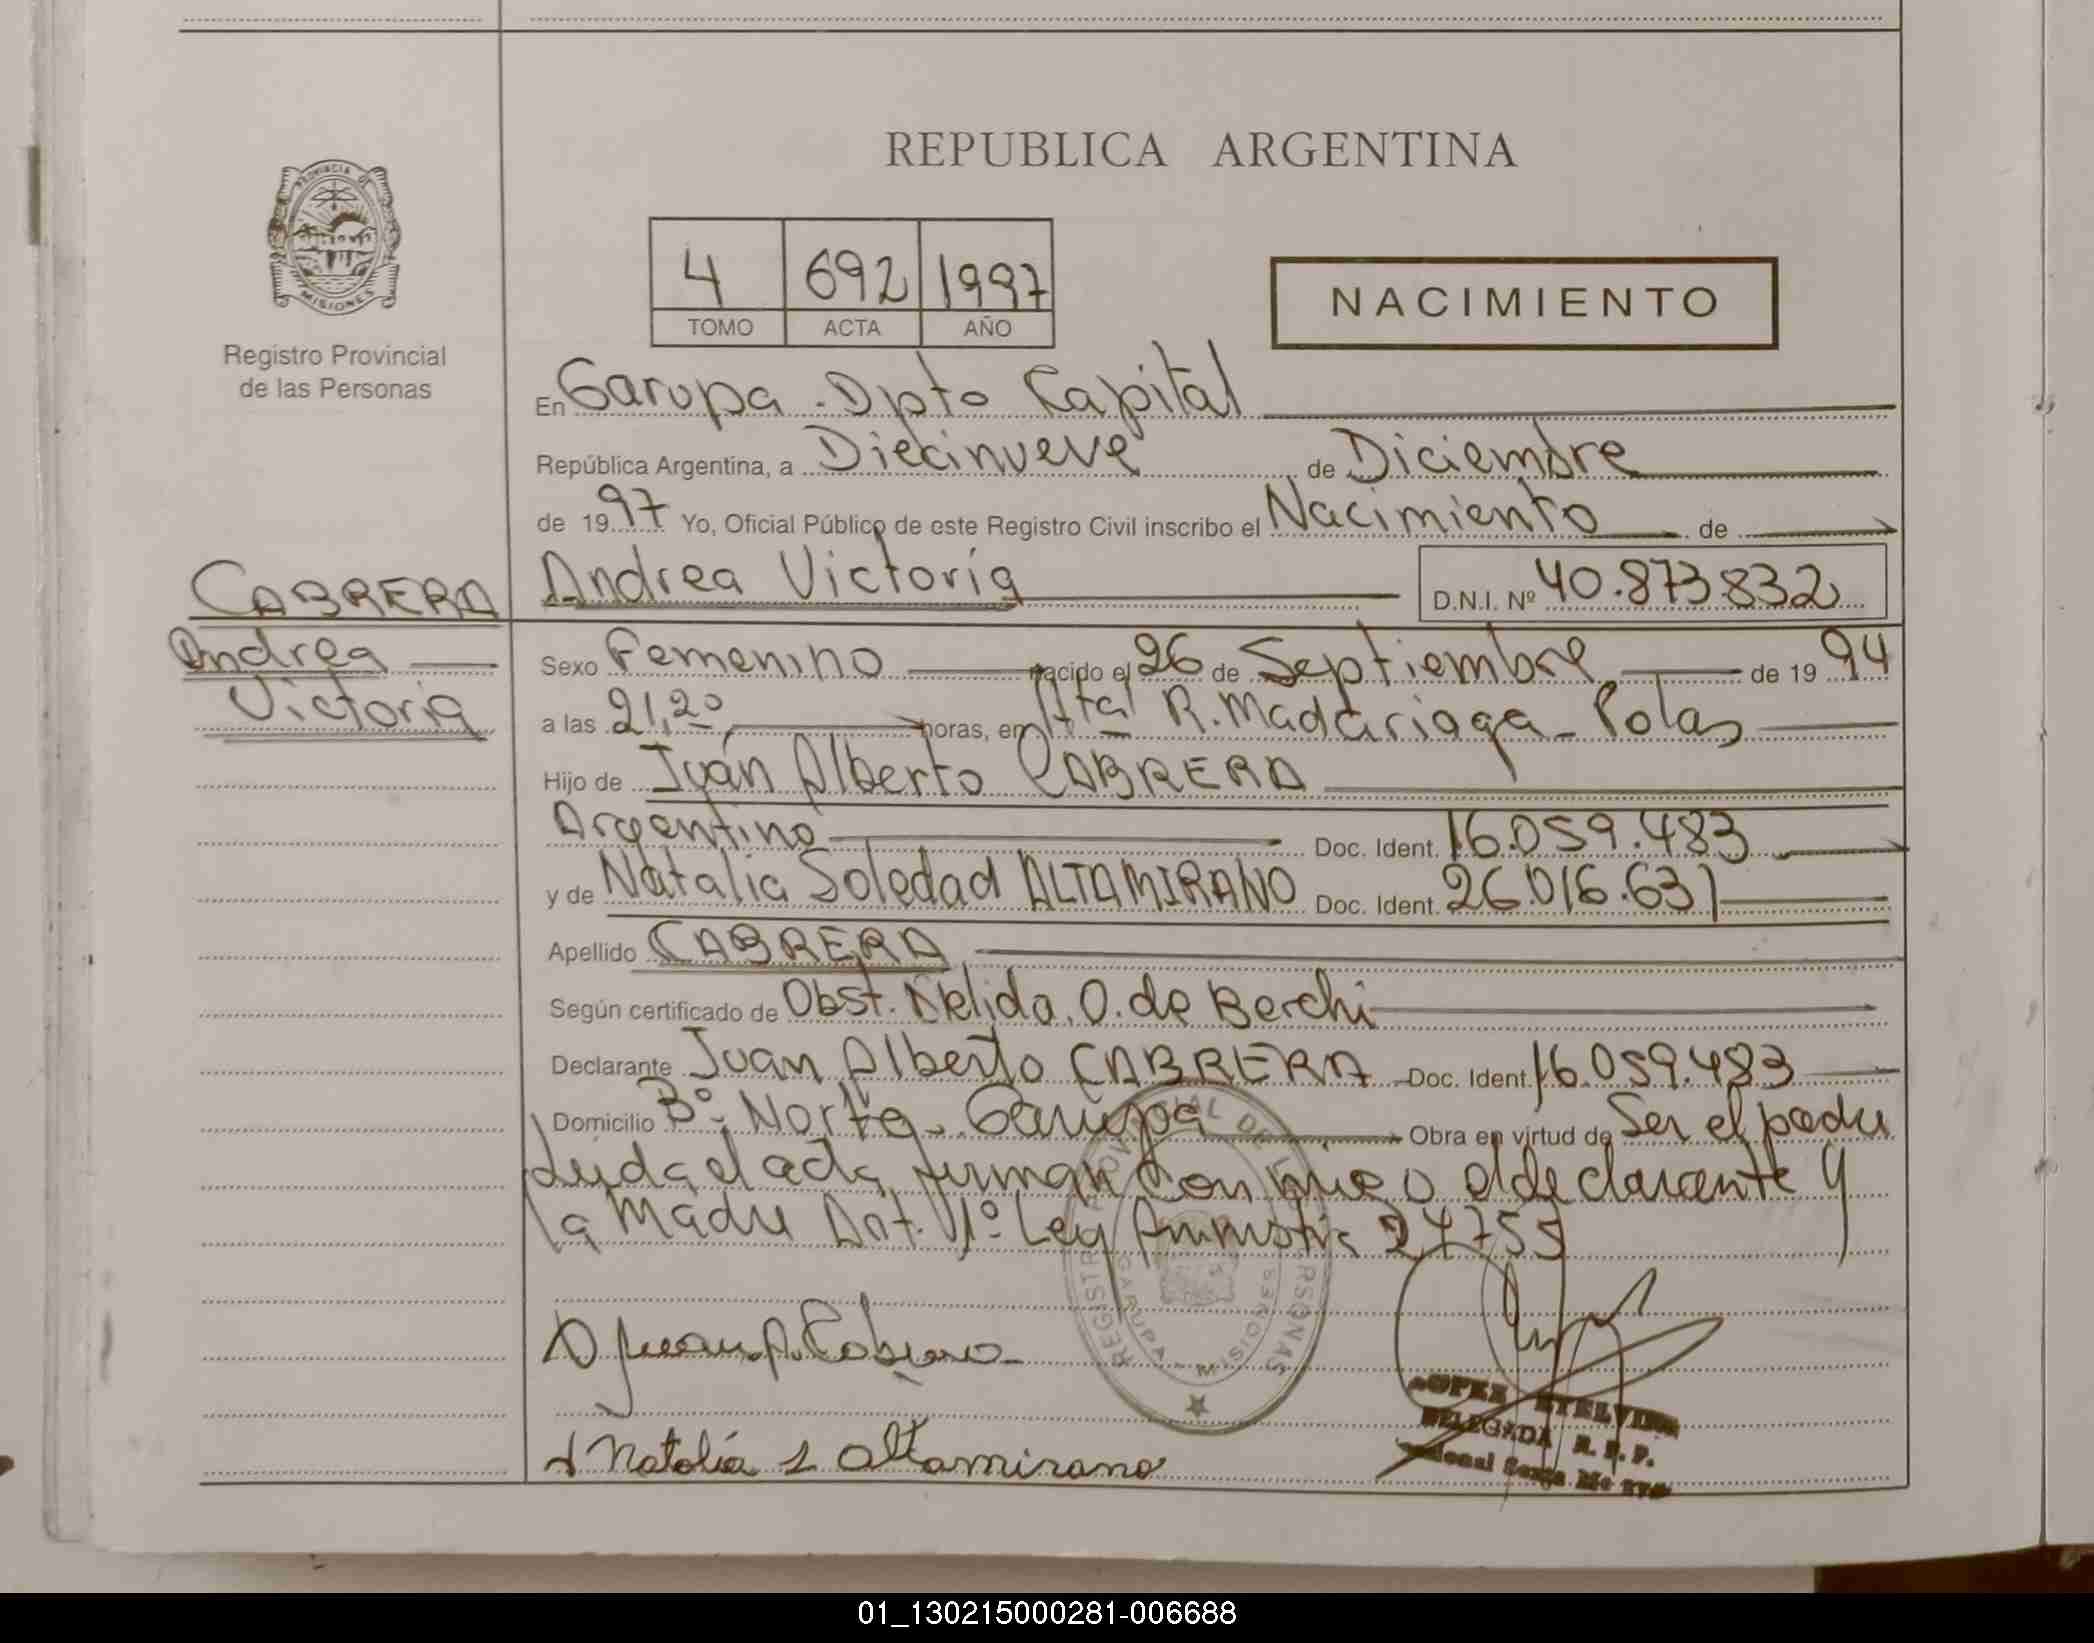 REPUBLICA ARGENTINA
PROVINCIA DE
MISIONES
Registro Provincial
de las Personas
4 692 1997
TOMO ACTA AÑO
NACIMIENTO
En Garupa - Dpto Capital
República Argentina, a Diecinueve de Diciembre
de 1997 Yo, Oficial Público de este Registro Civil inscribo el Nacimiento de
Andrea Victoria D.N.I. Nº 40.873.832
CABRERA
Andrea
Victoria
Sexo Femenino nacido el 26 de Septiembre de 1994
a las 21,20 horas, en Htal R. Madariaga - Pdas
Hijo de Juan Alberto CABRERA
Argentino Doc. Ident. 16.059.483
y de Natalia Soledad ALTAMIRANO Doc. Ident. 26.016.631
Apellido CABRERA
Según certificado de Obst. Nelida. O. de Berchi
Declarante Juan Alberto CABRERA Doc. Ident. 16.059.483
Domicilio Bº Norte - Garupa Obra en virtud de Ser el padre
Leida el acta firman conmigo el declarante y
la madre Art. 1º Ley Amnistia 24755
Juan A. Cabrera
Natalia S Altamirano
REGISTRO PROVINCIAL DE LAS PERSONAS
GARUPA - MISIONES
LOPEZ ETELVINA
DELEGADA R. P. P.
01_130215000281-006688